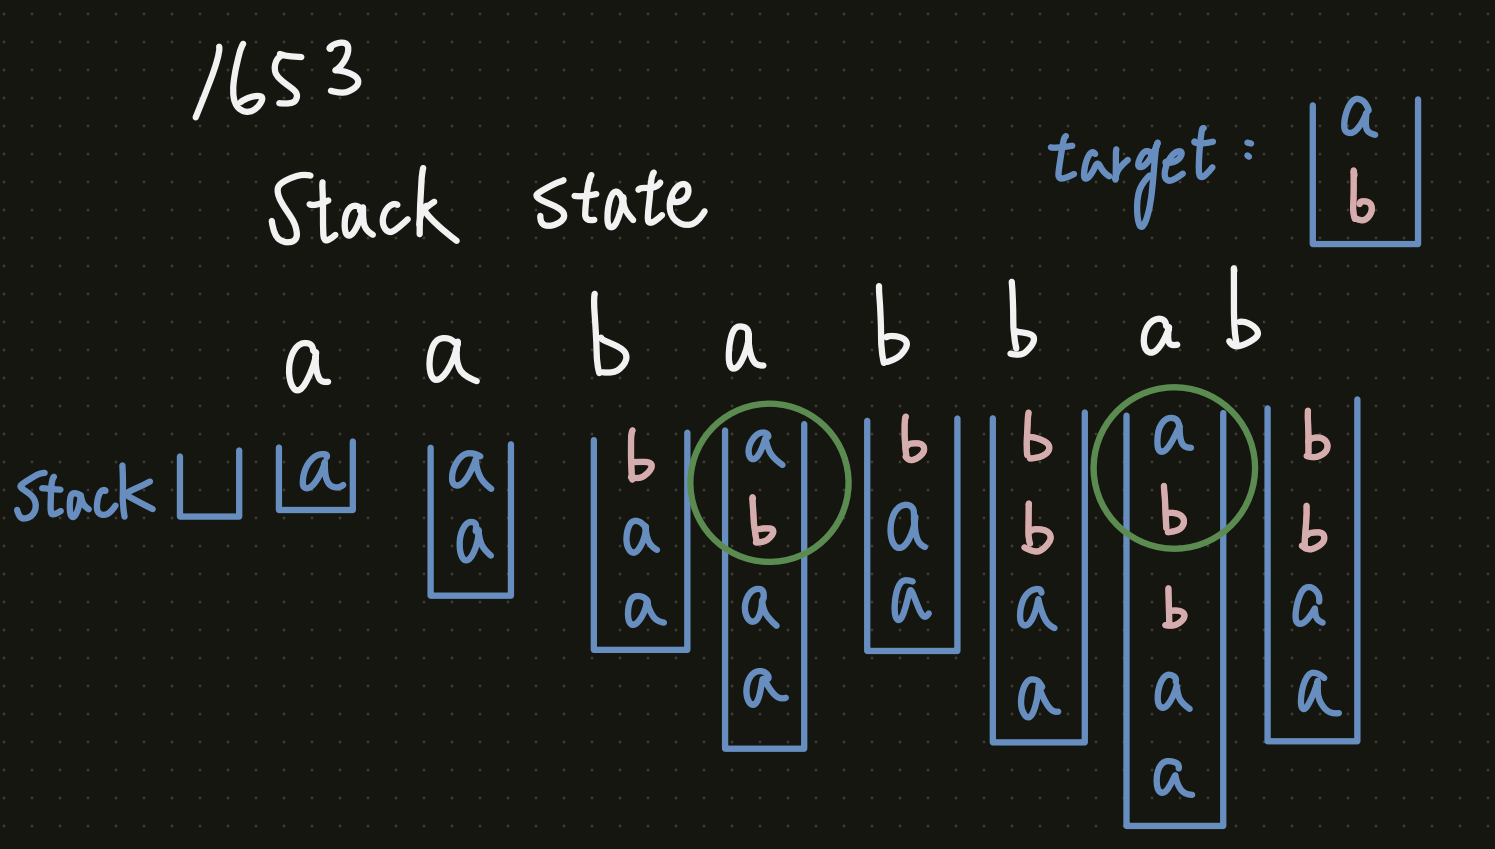 1653
Stack state
target:
a
b
a a b a b b a b
Stack
a
a
a
b
a
a
a
b
a
a
b
a
a
b
b
a
a
a
b
b
a
a
b
b
a
a